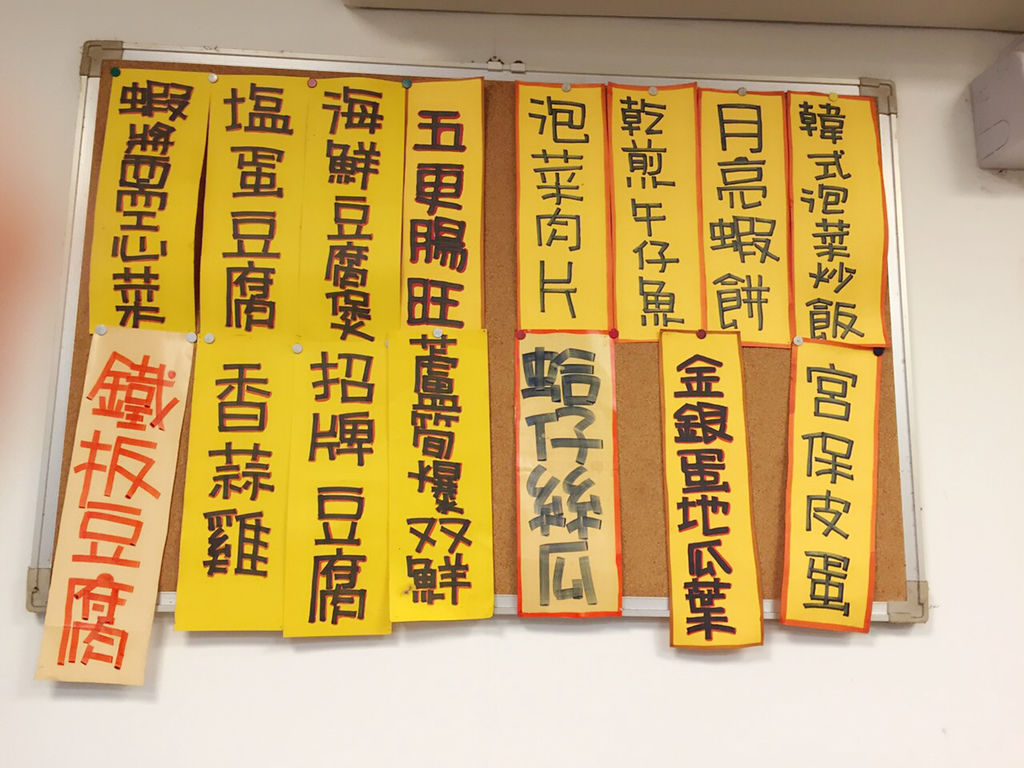 蝦醬空心菜
塩蛋豆腐
海鮮豆腐煲
五更腸旺
泡菜肉片
乾煎午仔魚
月亮蝦餅
韓式泡菜炒飯
鐵板豆腐
香蒜雞
招牌豆腐
蘆筍爆双鮮
蛤仔絲瓜
金銀蛋地瓜葉
宮保皮蛋